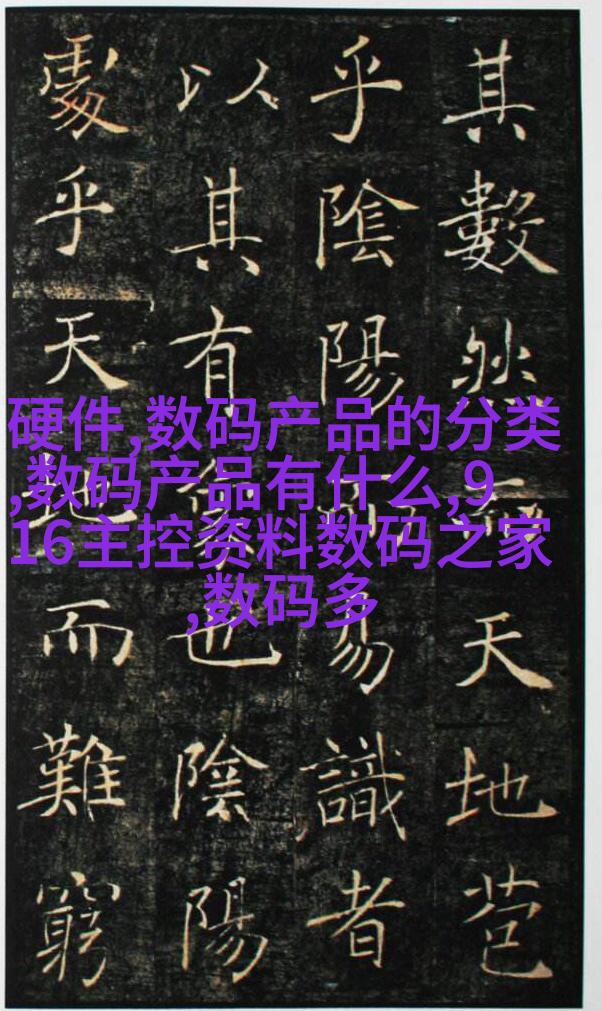 其數然天地苞
乎陰陽易識者
以其有也陰陽
處乎天地而難窮
硬件,数码产品的分类
,数码产品有什么,9
16主控资料数码之家
,数码多